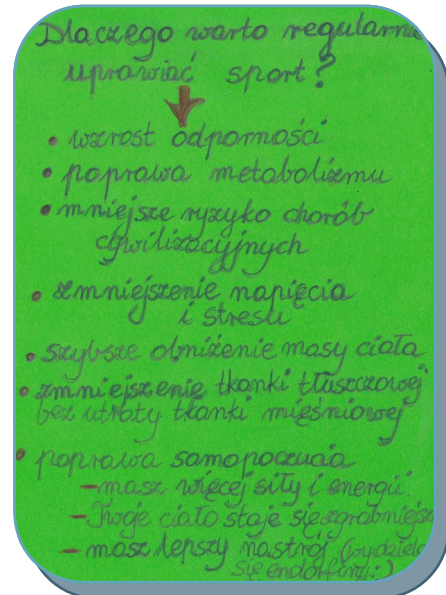 Dlaczego warto regularnie
uprawiać sport?
• wzrost odporności
• poprawa metabolizmu
• mniejsze ryzyko chorób
cywilizacyjnych
• zmniejszenie napięcia
i stresu
• szybsze obniżenie masy ciała
• zmniejszenie tkanki tłuszczowej
bez utraty tkanki mięśniowej
• poprawa samopoczucia
- masz więcej siły i energii
- Twoje ciało staje się zgrabniejsze
- masz lepszy nastrój (wydziela
się endorfiny :)